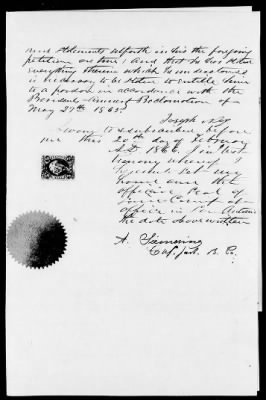 and statements setforth in his the forgoing
petition are true; and that he has stated
everything therein which he understand
is necessary to be stated to entitle him
to a pardon in accordance with the
President Amnesty Proclamation of
May 29th 1865.
Joseph
Sworn to & subscribed before
me this 20th day of February
A.D. 1866. In test
imony whereof I
hereunto set my
hand and the
official Seal of
County Court at
office in San Antonio
the date above written
A. Siemering
Chf. Just. B. Co.